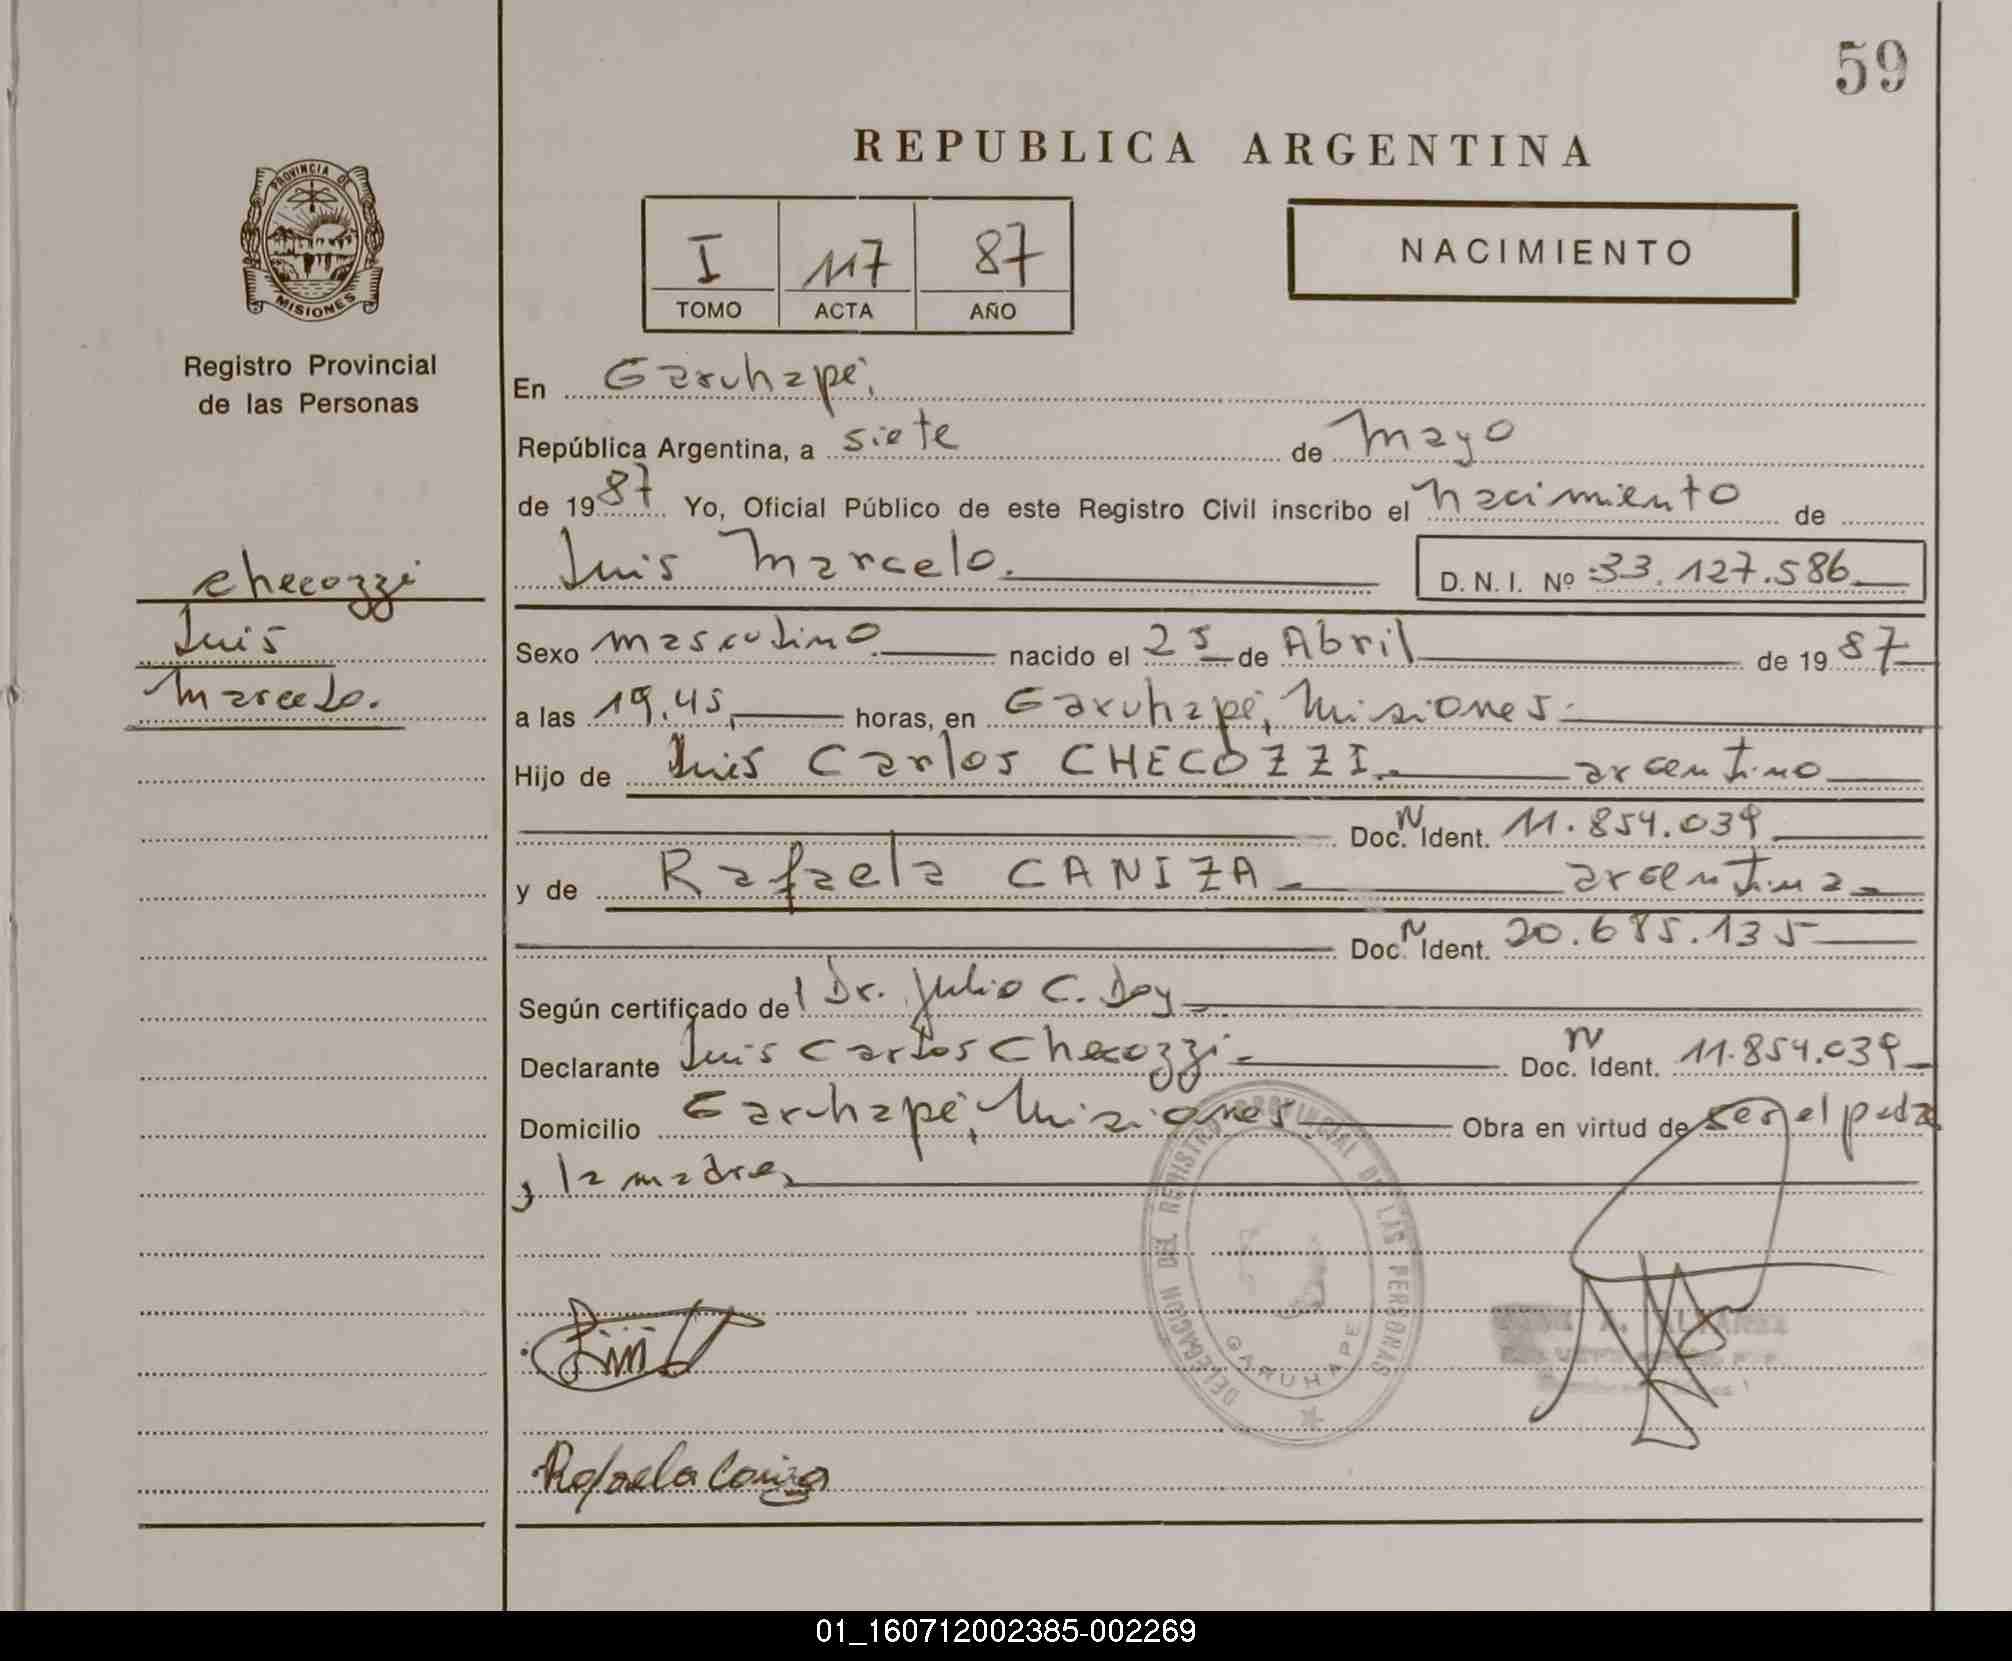 59
REPUBLICA ARGENTINA
PROVINCIA DE
MISIONES
Registro Provincial
de las Personas
I 117 87
TOMO ACTA AÑO
NACIMIENTO
En Garuhapé,
República Argentina, a siete de Mayo
de 1987 Yo, Oficial Público de este Registro Civil inscribo el nacimiento de
Luis Marcelo. D.N.I. Nº 33.127.586
Checozzi
Luis
Marcelo.
Sexo masculino nacido el 25 de Abril de 1987
a las 19,45 horas, en Garuhapé, Misiones.
Hijo de Luis Carlos CHECOZZI. argentino
Doc. N Ident. 11.854.039
y de Rafaela CANIZA argentina
Doc. N Ident. 20.685.135
Según certificado de Dr. Julio C. Doy
Declarante Luis Carlos Checozzi Doc. N Ident. 11.854.039
Domicilio Garuhapé, Misiones Obra en virtud de ser el padre
y la madre
DELEGACION DEL REGISTRO PROVINCIAL DE LAS PERSONAS
GARUHAPE
Rafaela Caniza
01_160712002385-002269